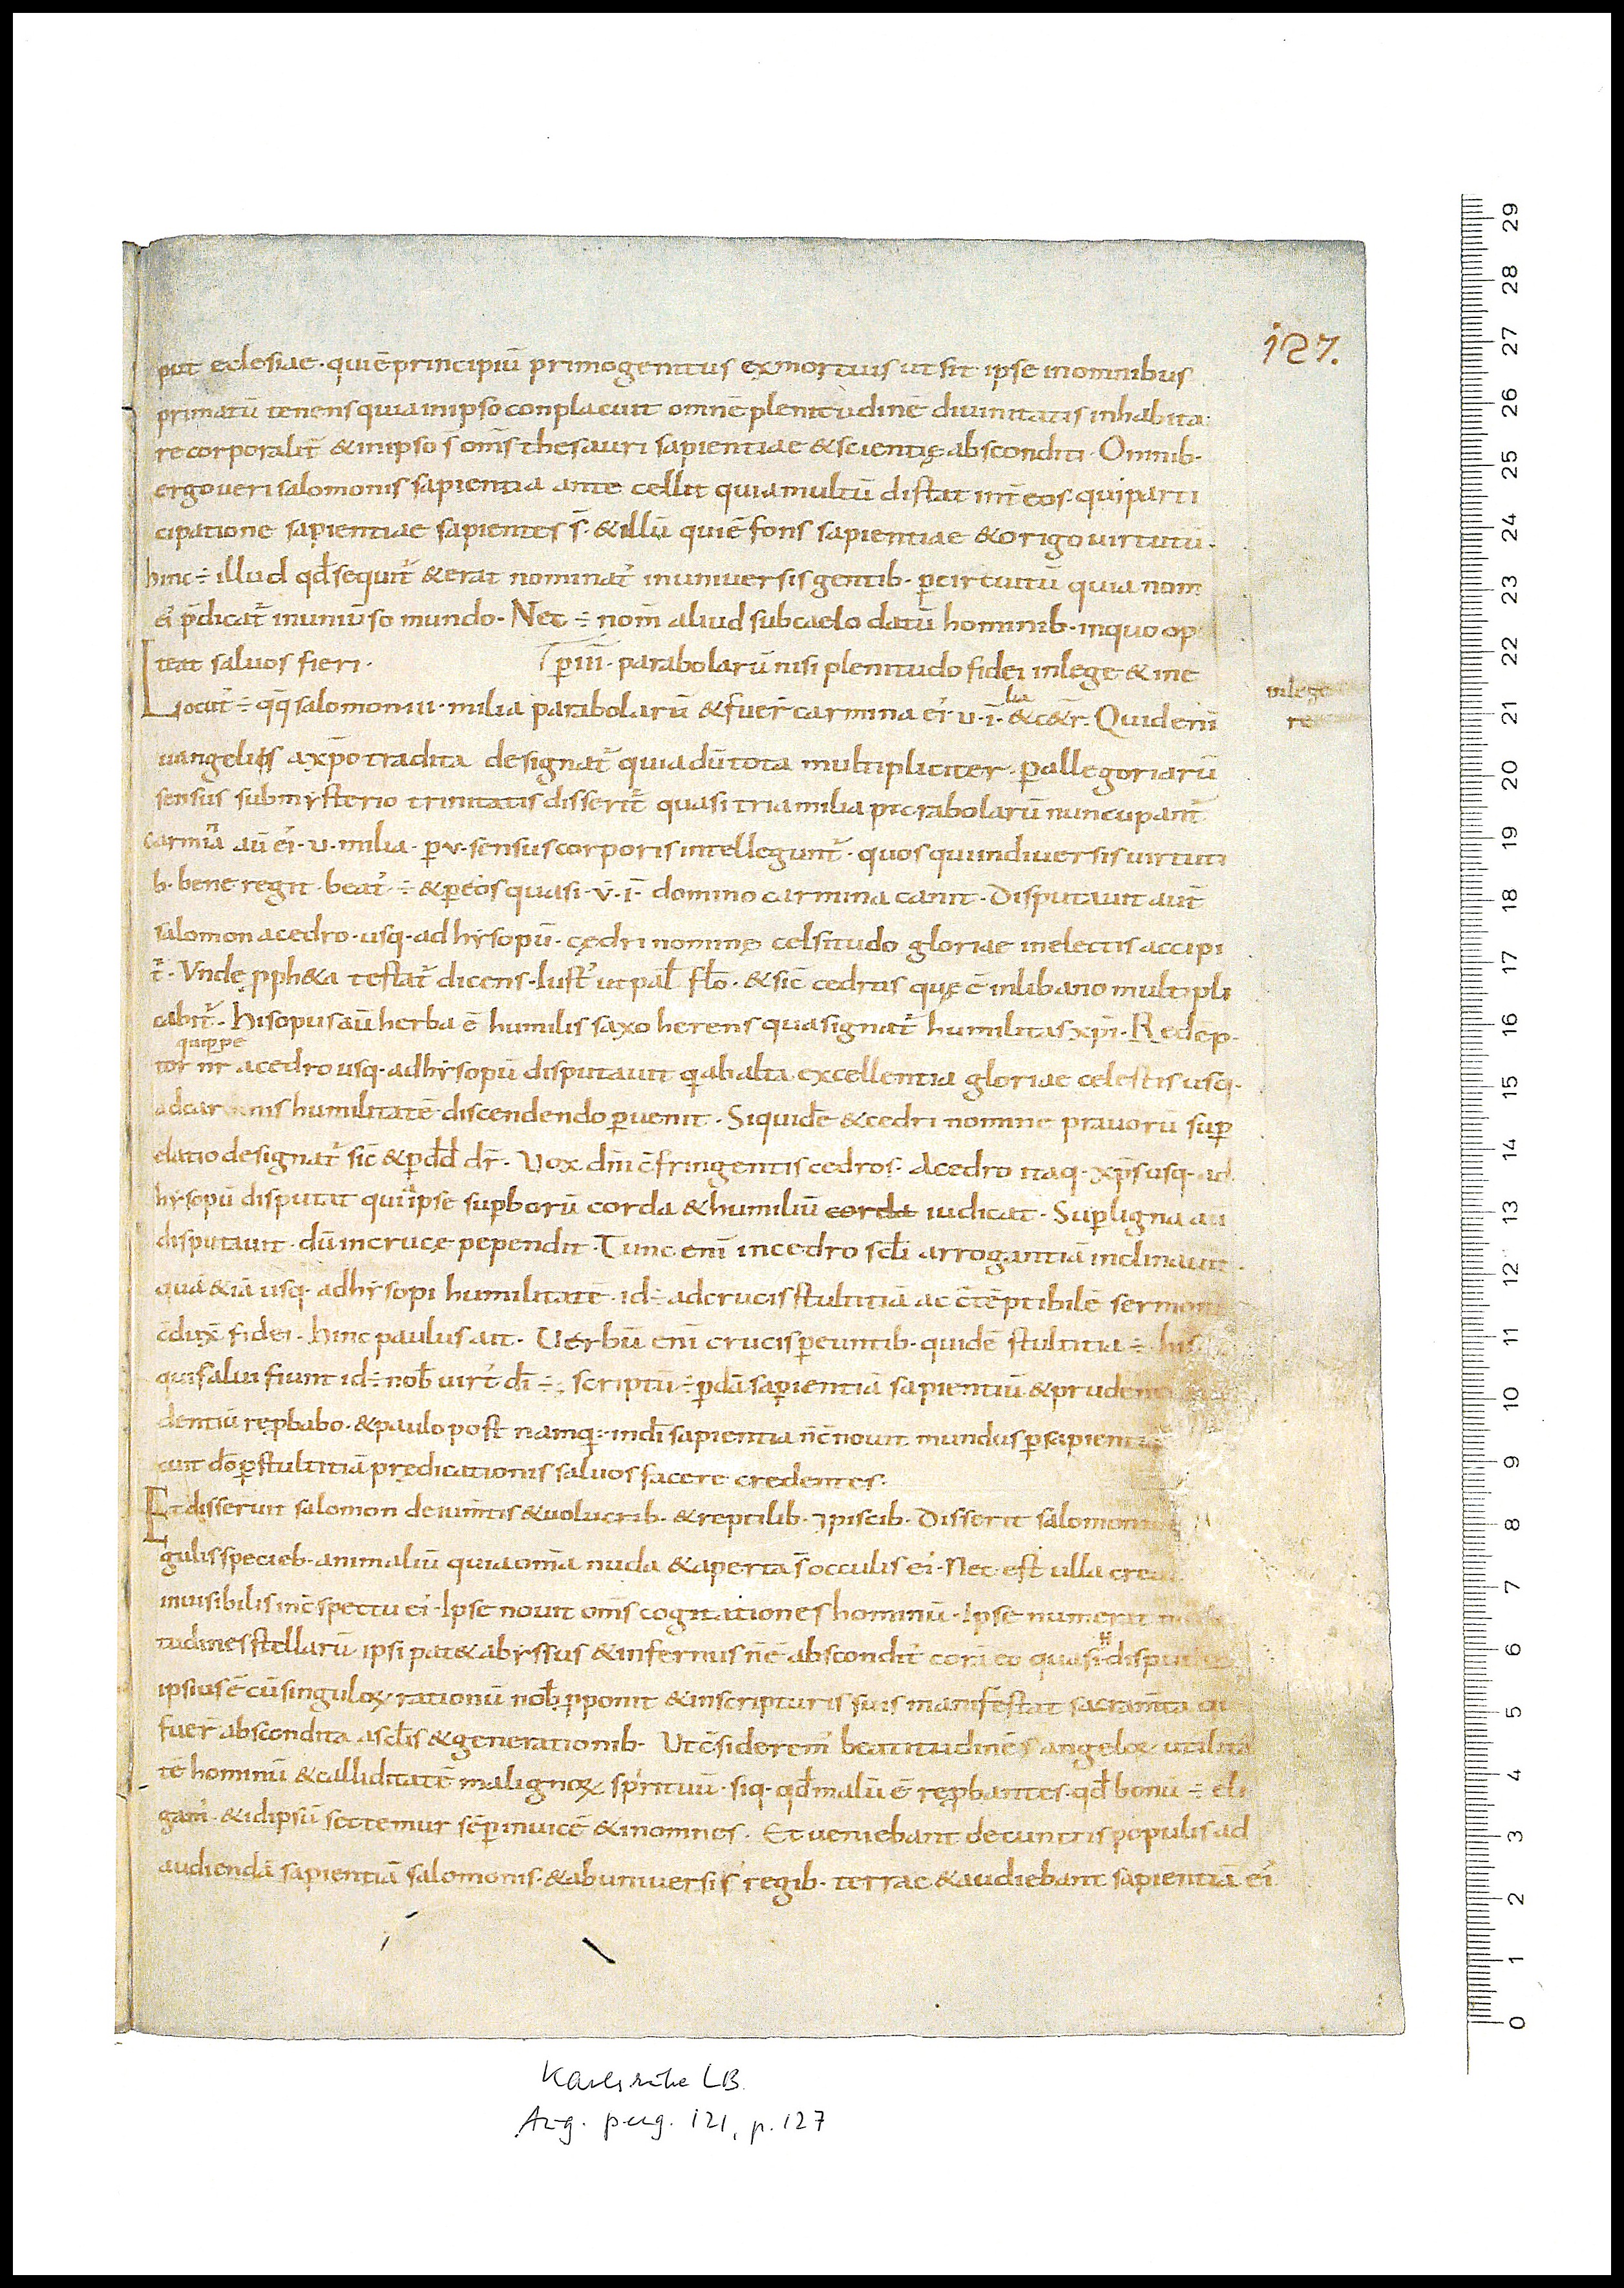 127.
put eclesiae · quiē principiū primogenitus ex mortuis ut sit ipse in omnibus
primatū tenens quia in ipso conplacuit omnē plenitudinē divinitatis inhabita
re corporalit̄ & in ipso s̄ om̄s thesauri sapientiae & scientię absconditi · Omnib·
ergo veri salomonis sapientia ante cellit quia multū distat int̄ eos · qui parti
cipatione sapientiae sapientes s̄ · & illū quiē fons sapientiae & origo virtutū ·
hinc ÷ illud qđ sequit̄ & erat nominat᾿ in universis gentib · ꝑ circuitū quia nom̄
ei᾿ p̄dicat̄ in univ̄so mundo · Nec ÷ nom̄ aliud sub caelo datū hominib · in quo op
teat salvos fieri · ꝑ III · parabolarū nisi plenitudo fidei in lege & in e
Locut᾿ ÷ qq̄ salomon · III · milia parabolarū & fuer̄ carmina ei᾿ · v · ī · & c&ēr · Quid enī
la
in lege
re
uangeliis a xp̄o tradita designat̄ quia dū tota multipliciter · ꝑ allegoriarū
sensus sub mysterio trinitatis disserit̄ quasi tria milia parabolarū nuncupant̄
carmīa aū ei᾿ · v · milia · ꝑ v · sensus corporis intellegunt̄ · quos qui in diversis virtuti
b · bene regit · beat᾿ ÷ & ꝑ eos quasi · v̄ · ī · domino carmina canit · Disputavit aut̄
salomon a cedro · usq · ad hysopū · cędri nominę celsitudo gloriae in electis accipi
t̄ · Vndę ꝓph&a testat̄ dicens · Iust᾿ ut pal̄ flo · & sic̄ cedrus quę ē in libano multipli
cabit̄ · Hisopus aū herba ē humilis saxo herens qua signat̄ humilitas xp̄i · Redēp
quippe
tor nr̄ a cedro usq · ad hysopū disputavit q ab alta excellentia gloriae celestis usq ·
ad carnis humilitatē discendendo ꝑvenit · Siquidē & cedri nomine pravorū suꝑ
elatio designat̄ sic̄ & ꝑ dđ dr̄ · Vox dn̄i c̄fringentis cedros · A cedro itaq · xp̄s usq · ad
hysopū disputat quia ipse suꝑborū corda & humiliū corda iudicat · Suꝑ ligna aū
disputavit · dū in cruce pependit · Tunc enī in cedro scl̄i arrogantiā inclinavit ·
quā &iā usq · ad hysopi humilitatē · id ÷ ad crucis stultitiā ac c̄tēptibilē sermon
c̄dux̄ fidei · Hinc paulus ait · Verbū enī crucis ꝑeuntib · quidē stultitia ÷ his
qui salvi fiunt id ÷ nob̄ virt᾿ dī ÷ · scriptū ÷ ꝑdā sapientiā sapientiū & prudent
dentiū reꝓbabo · & paulo post namq · in dī sapientia n̄ c̄novit mundus ꝑ sapientiā
cuit dō ꝑ stultitiā predicationis salvos facere credentes ·
Et disseruit salomon de iumtis & volucrib · & reptilib · 7 piscib · Disserit salomon
gulis specieb · animaliū quia om̄a nuda & aperta s̄ occulis ei᾿ · Nec est ulla crea
invisibilis in c̄spectu ei᾿ · Ipse novit om̄s cogitationes hominū · Ipse numerat
tudines stellarū ipsi pat& abyssus & infernus n̄ē abscondit᾿ corā eo quasi disput
ipsius ē cū singuloꝝ · rationū nob̄ ꝓponit & in scripturis suis manifestat sacram̄ta
fuer̄ abscondita a scl̄is & generationib · Ut c̄siderem᾿ beatitudinēs angeloꝝ utilita
tē hominū & calliditatē malignoꝝ sp̄irituū · siq · qđ malū ē reꝓbantes · qđ bonū ÷ eli
gam᾿ · & id ipsū sectemur sēꝑ invicē & in omnes · Et veniebant de cunctis populis ad
audiendā sapientiā salomonis · & ab universis regib · terrae & audiebant sapientiā ei᾿
Karlsruhe LB.
Aug. perg. 121, p. 127
0 1 2 3 4 5 6 7 8 9 10 11 12 13 14 15 16 17 18 19 20 21 22 23 24 25 26 27 28 29